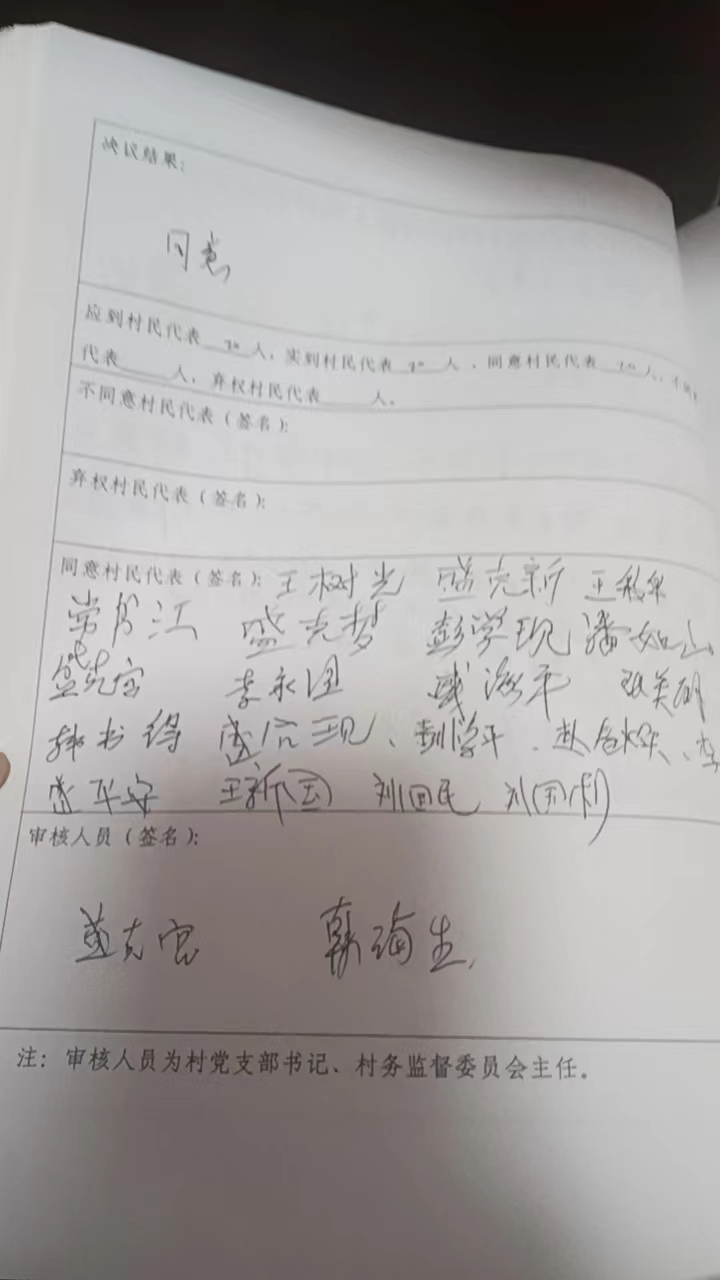 决议结果:
同意
应到村民代表 20 人,实到村民代表 20 人,同意村民代表 20 人,不同意
代表 人,弃权村民代表 人。
不同意村民代表(签名):
弃权村民代表(签名):
同意村民代表(签名): 王树光 盛克新 王秋军
常月江 盛克梦 彭学现 潘如山
盛克宝 李永国 盛海平 张美丽
韩书得 盛信现、彭学平、赵
平安 王新国 刘国民 刘国利
审核人员(签名):
盛克宝 韩海生
注:审核人员为村党支部书记、村务监督委员会主任。